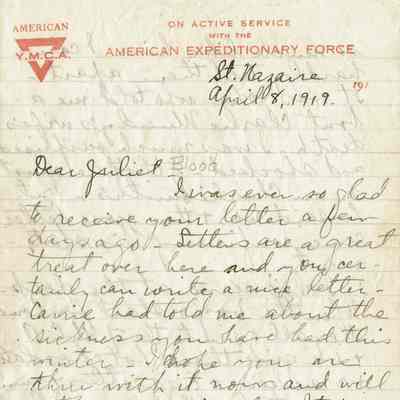 AMERICAN
Y.M.C.A.
ON ACTIVE SERVICE
WITH THE
AMERICAN EXPEDITIONARY FORCE
St. Nazaire
191
April 8, 1919.
Dear Juliet Blood
I was ever so glad
to receive your letter a few
days ago - Letters are a great
treat over here and you cer-
tainly can write a nice letter -
Carrie had told me about the
sickness you have had this
winter - I hope you are
thru with it now and will